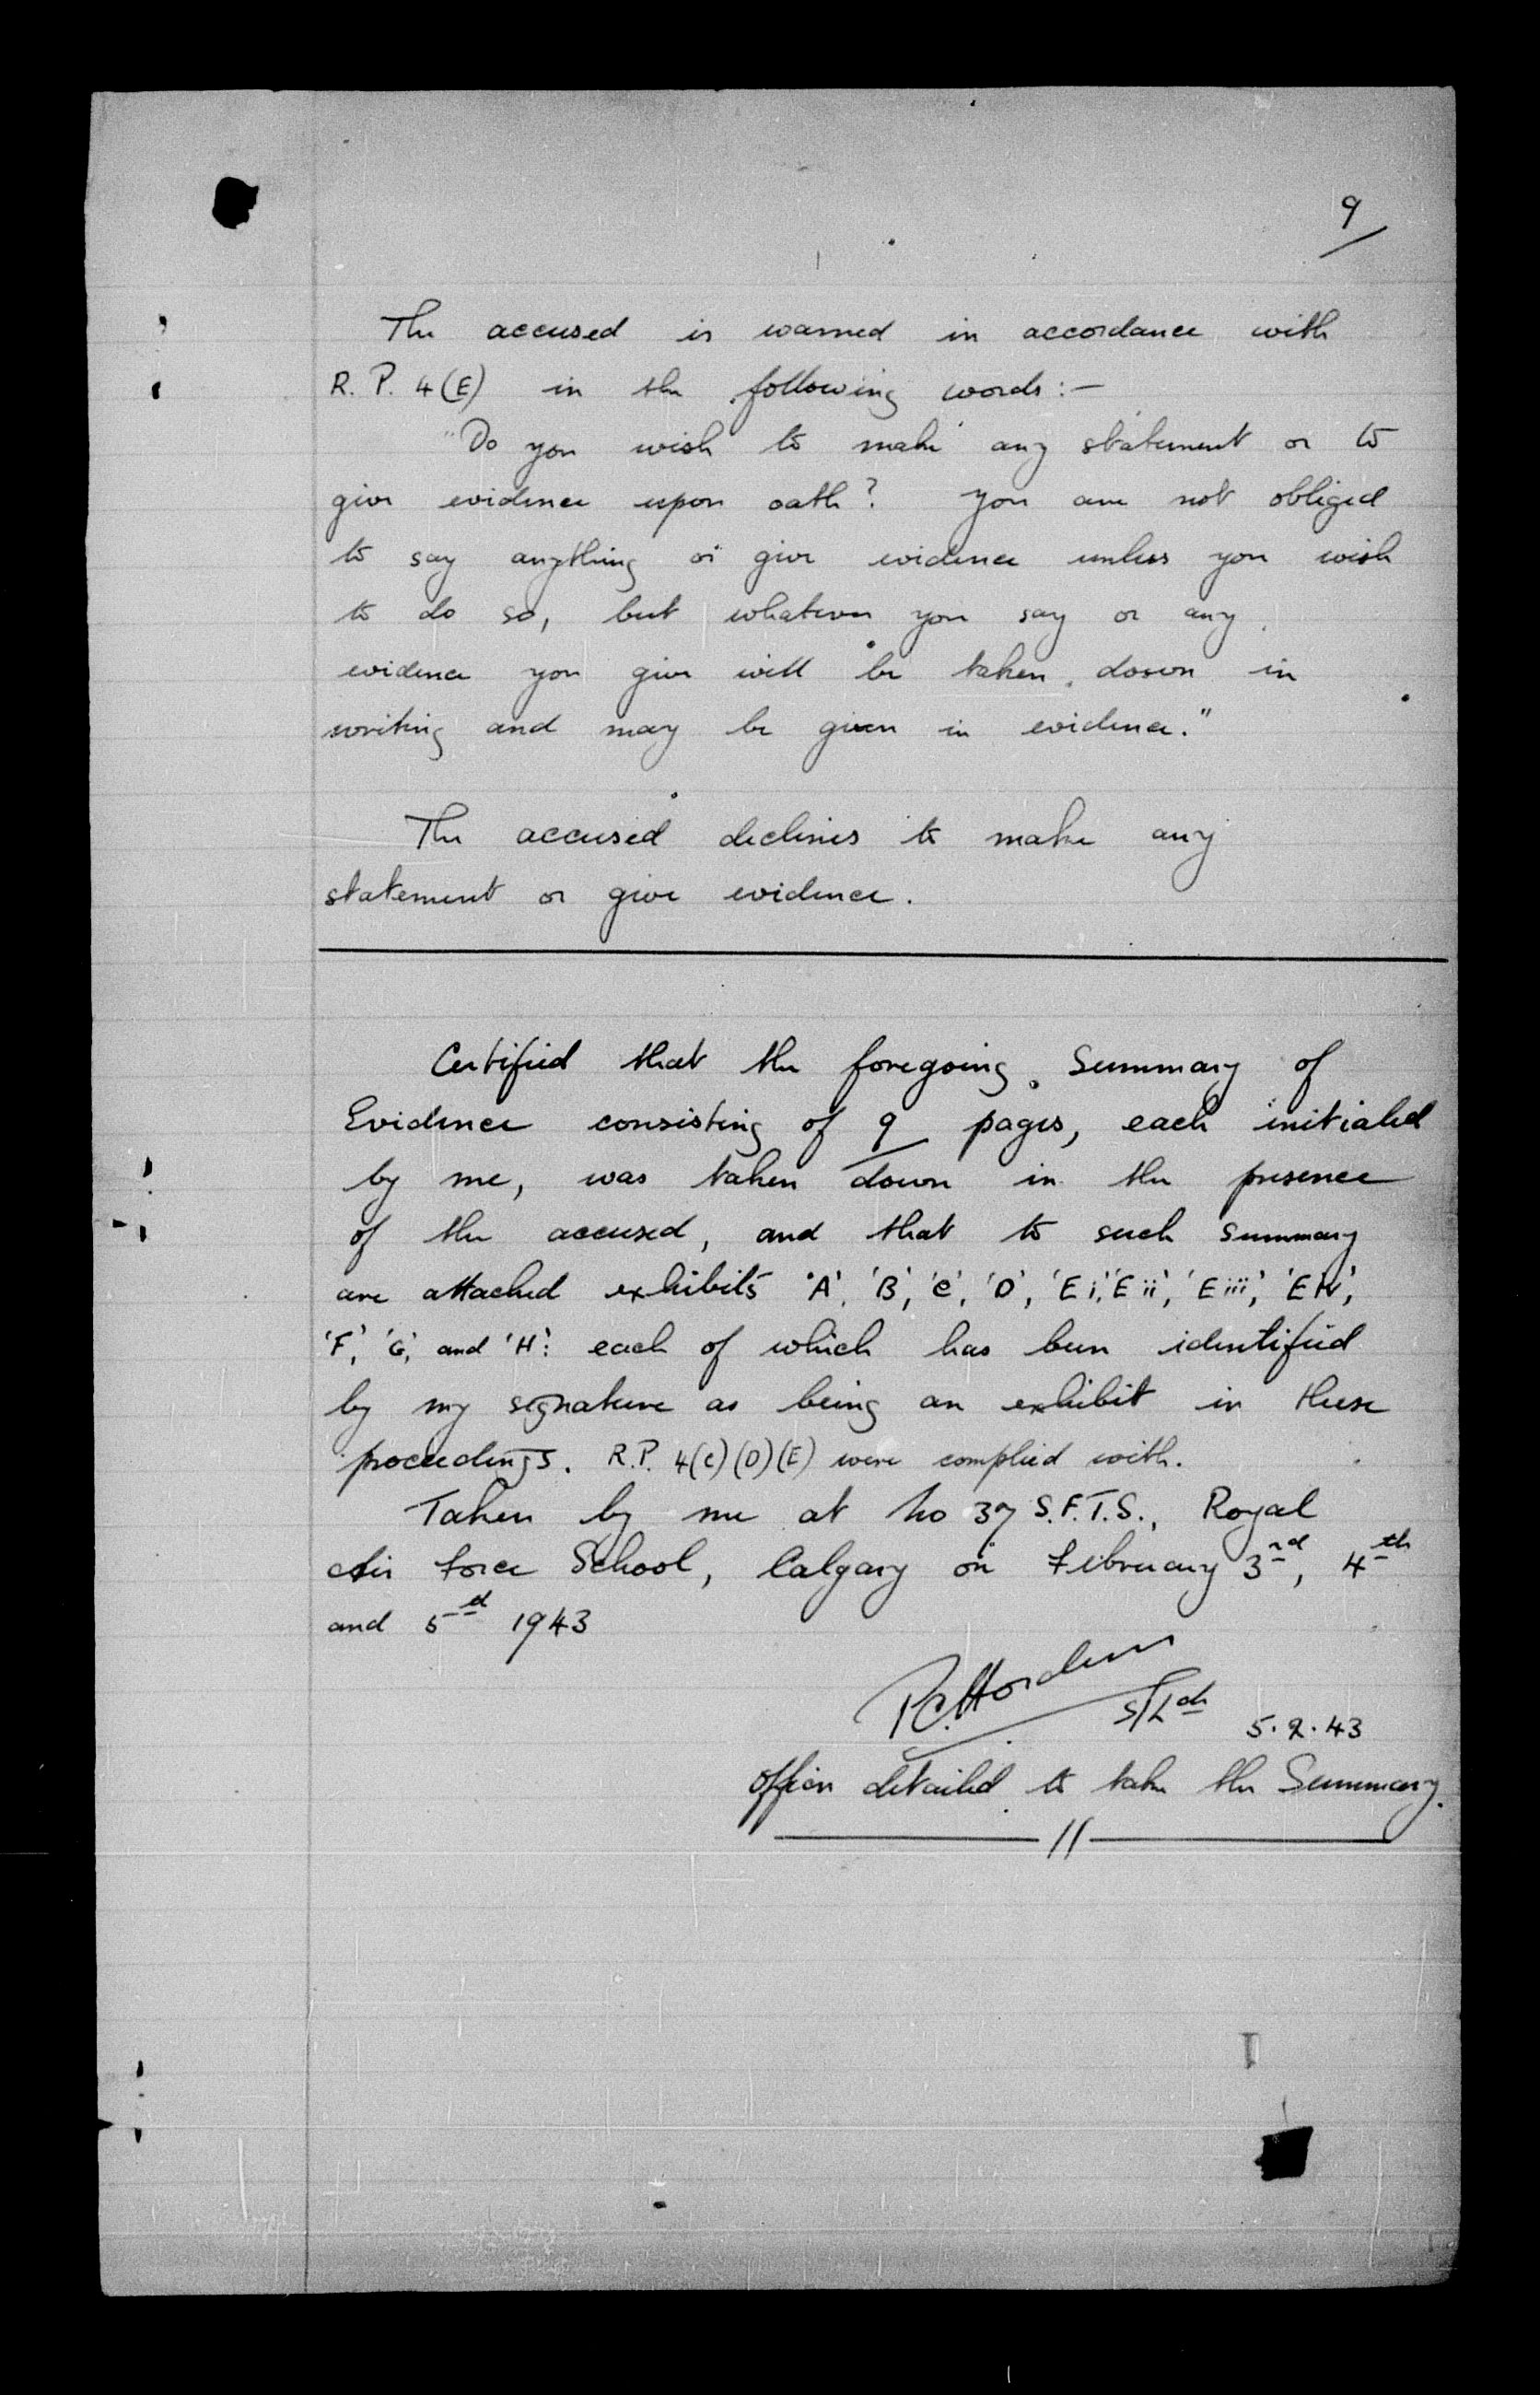 9
The accused is warned in accordance with
R. P. 4(E) in the following words:-
"Do you wish to make any statement or to
give evidence upon oath? You are not obliged
to say anything or give evidence unless you wish
to do so, but whatever you say or any
evidence you give will be taken down in
writing and may be given in evidence."
The accused declines to make any
statement or give evidence.
Certified that the foregoing Summary of
Evidence consisting of 9 pages, each initialed
by me, was taken down in the presence
of the accused, and that to such summary
are attached exhibits 'A', 'B', 'C', 'D', 'E i', 'E ii', 'E iii', 'E iv',
'F', 'G', and 'H': each of which has been identified
by my signature as being an exhibit in these
proceedings. R.P. 4(C)(D)(E) were complied with.
Taken by me at No 37 S.F.T.S., Royal
Air Force School, Calgary on February 3rd, 4th
and 5th 1943
S/Ldr 5.2.43
Officer detailed to take the Summary.